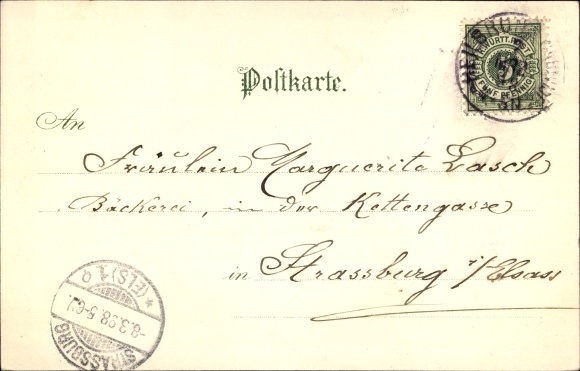 K. WÜRTT. POST
5
FÜNF PFENNIG
HEILBRONN
Postkarte.
An
Fräulein Marguerite Lasch
Bäckerei, in der Kettengasse
in Strassburg i/Elsass
* (ELS) 1 q
-8.3.98 5-6
STRASSBURG